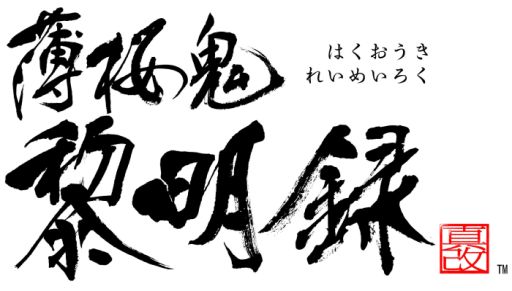 薄桜鬼
はくおうき
れいめいろく
黎明録
真改
TM